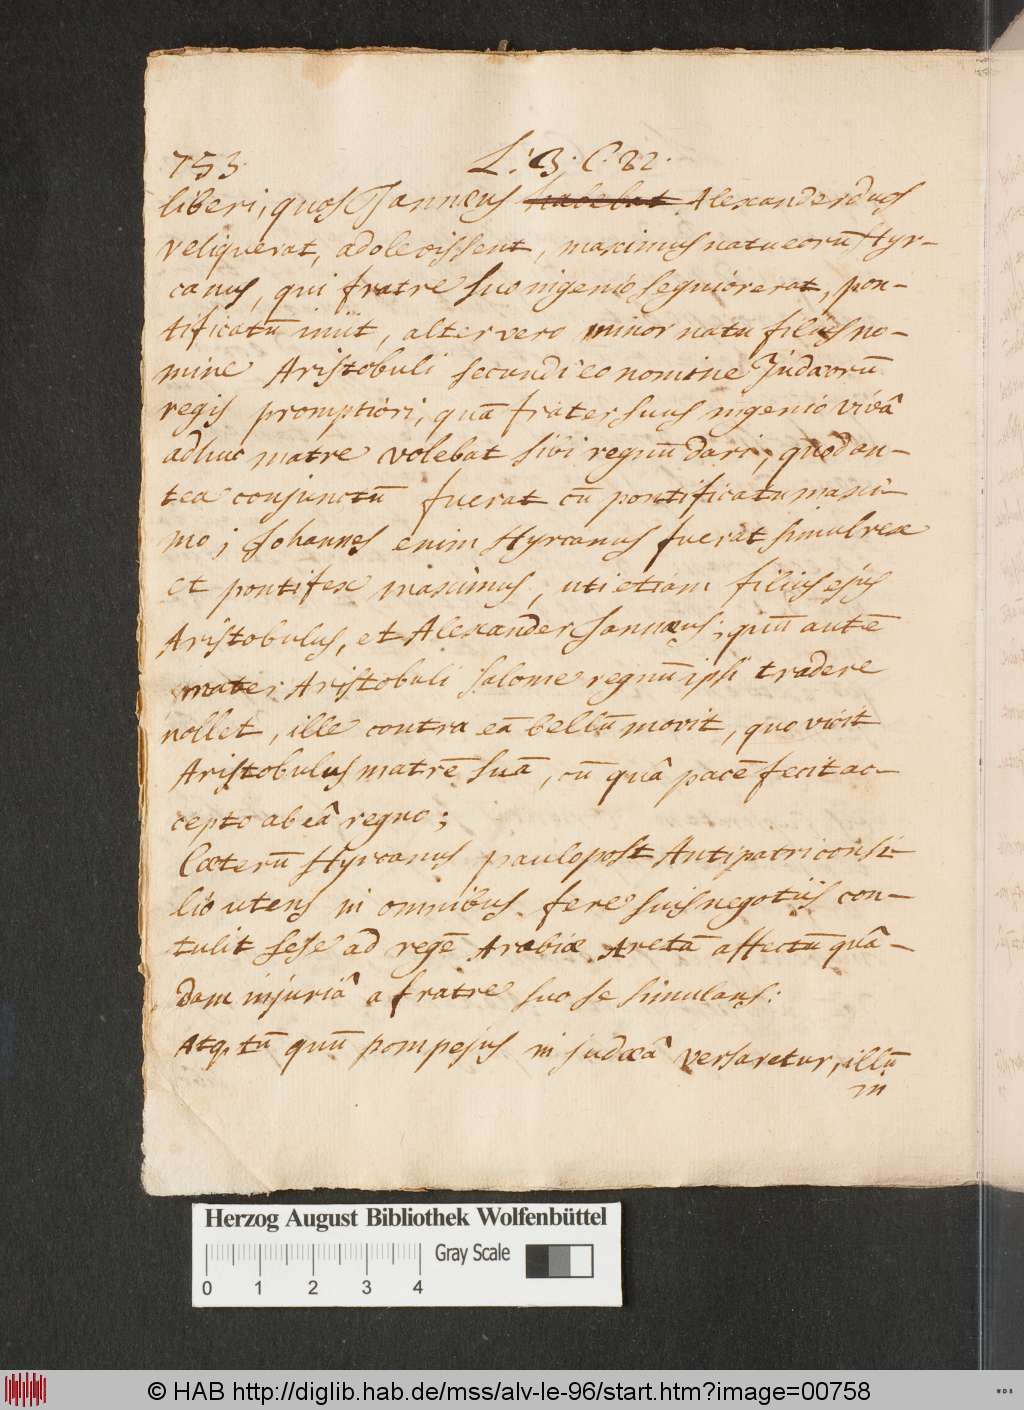 753.
L. 3. C. 22.
liberi, quos Jannæus habebat Alexander duos
reliquerat, adolevissent, maximus natu eorũ Hyr-
canus, qui fratre suo ingenio segnior erat, pon-
tificatũ iniit, alter vero minor natu filius no-
mine Aristobuli secundi eo nomine Judæorũ
regis promptiori, quã frater suus ingenio vivâ
adhuc matre volebat sibi regnũ dari, quod an-
tea conjunctũ fuerat cũ pontificatu maxi-
mo; Johannes enim Hyrcanus fuerat simul rex
et pontifex maximus, uti etiam filius ejus
Aristobulus, et Alexander Jannæus; quũ autẽ
mater Aristobuli Salome regnũ ipsi tradere
nollet, ille contra eã bellũ movit, quo vicit
Aristobulus matrẽ suã, cũ quâ pacẽ fecit ac-
cepto ab eâ regno;
Cæterũ Hyrcanus paulo post Antipatri consi-
lio utens in omnibus fere suis negotiis con-
tulit sese ad regẽ Arabiæ Aretã affectũ quâ-
dam injuriâ a fratre suo se simulans:
Atq, tũ quũ Pompejus in Judæâ versaretur, illũ
in
Herzog August Bibliothek Wolfenbüttel
Gray Scale
0 1 2 3 4
© HAB http://diglib.hab.de/mss/alv-le-96/start.htm?image=00758